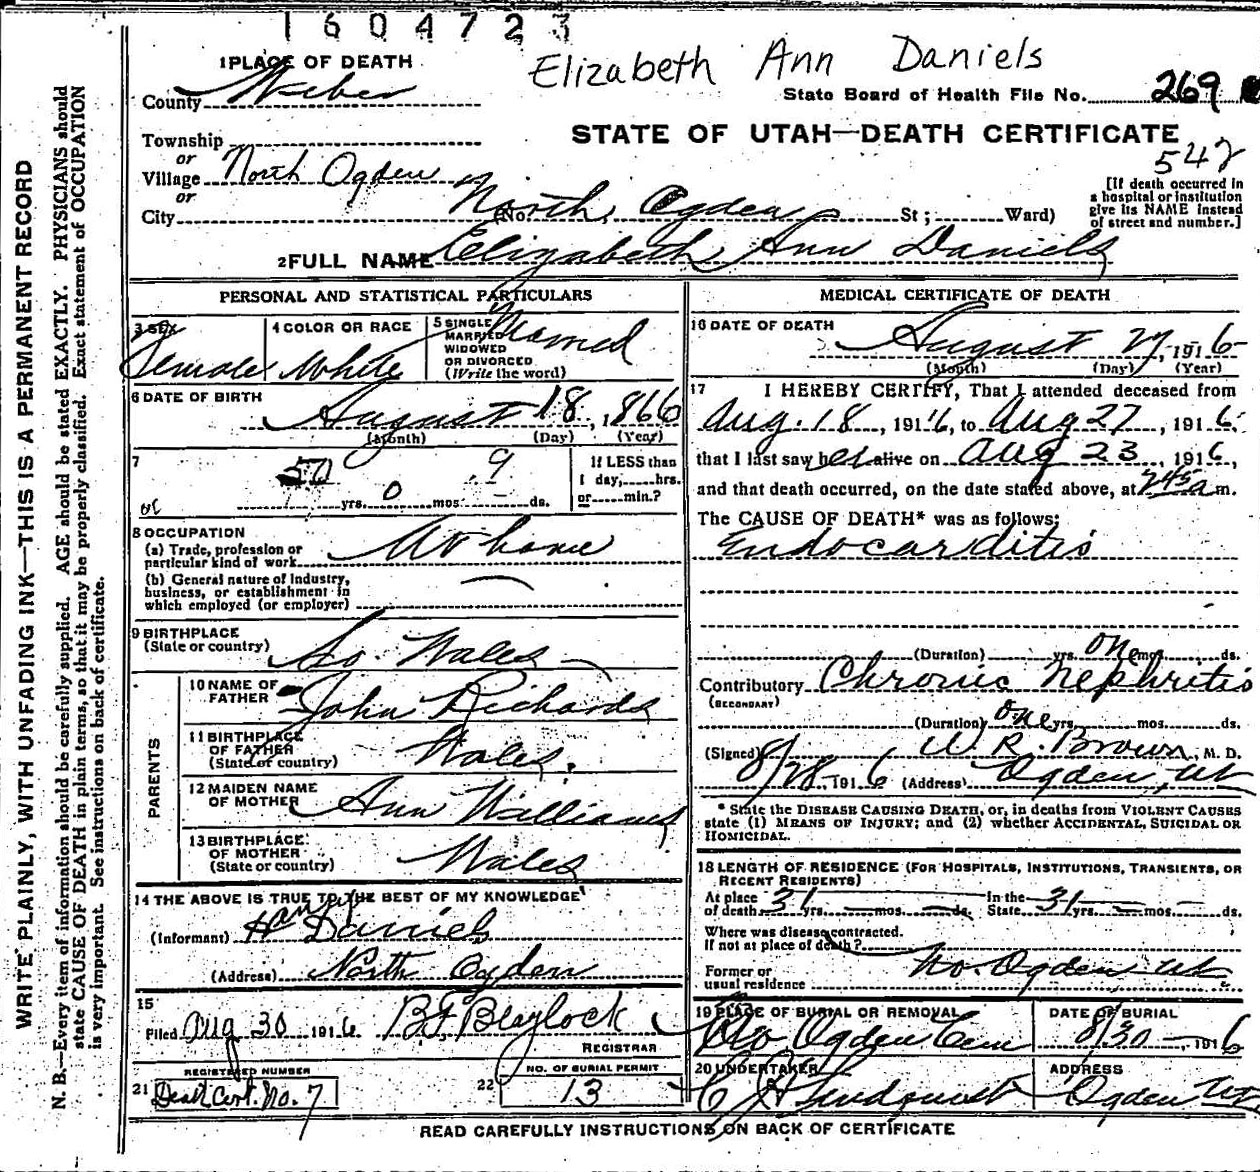 1604723
Elizabeth Ann Daniels
1 PLACE OF DEATH
County Weber
State Board of Health File No. 269
STATE OF UTAH—DEATH CERTIFICATE
542
Township
or
Village North Ogden
or
City (No. North Ogden St; Ward)
[If death occurred in
a hospital or institution
give its NAME instead
of street and number.]
2 FULL NAME Elizabeth Ann Daniels
PERSONAL AND STATISTICAL PARTICULARS
3 SEX
Female
4 COLOR OR RACE
White
5 SINGLE
MARRIED
WIDOWED
OR DIVORCED
(Write the word)
Married
6 DATE OF BIRTH
August 18, 1866
(Month) (Day) (Year)
7
50 yrs. 0 mos. 9 ds.
If LESS than
1 day,......hrs.
or......min.?
8 OCCUPATION
(a) Trade, profession or
particular kind of work At home
(b) General nature of Industry,
business, or establishment in
which employed (or employer)
9 BIRTHPLACE
(State or country) So. Wales
PARENTS
10 NAME OF
FATHER John Richards
11 BIRTHPLACE
OF FATHER
(State or country) Wales.
12 MAIDEN NAME
OF MOTHER Ann Williams
13 BIRTHPLACE
OF MOTHER
(State or country) Wales
14 THE ABOVE IS TRUE TO THE BEST OF MY KNOWLEDGE
(Informant) Daniels
(Address) North Ogden
15
Filed Aug 30 1916 B.F. Blaylock
REGISTRAR
REGISTERED NUMBER
21 Death Cert. No. 7
NO. OF BURIAL PERMIT
22 13
MEDICAL CERTIFICATE OF DEATH
16 DATE OF DEATH
August 27, 1916
(Month) (Day) (Year)
17 I HEREBY CERTIFY, That I attended deceased from
Aug. 18, 1916, to Aug 27, 1916,
that I last saw her alive on Aug 23, 1916,
and that death occurred, on the date stated above, at 2 45 a m.
The CAUSE OF DEATH* was as follows:
Endocarditis
(Duration) yrs. one mos. ds.
Contributory Chronic Nephritis
(SECONDARY)
(Duration) one yrs. mos. ds.
(Signed) W. R. Brown, M. D.
8/28, 1916 (Address) Ogden, Ut
* State the DISEASE CAUSING DEATH, or, in deaths from VIOLENT CAUSES
state (1) MEANS OF INJURY; and (2) whether ACCIDENTAL, SUICIDAL OR
HOMICIDAL.
18 LENGTH OF RESIDENCE (FOR HOSPITALS, INSTITUTIONS, TRANSIENTS, OR
RECENT RESIDENTS)
At place
of death 31 yrs. — mos. — ds. In the
State 31 yrs. — mos. — ds.
Where was disease contracted.
If not at place of death?
Former or
usual residence No. Ogden Ut
19 PLACE OF BURIAL OR REMOVAL
No Ogden Cem
DATE OF BURIAL
8/30 —, 1916
20 UNDERTAKER
Lindquist
ADDRESS
Ogden Ut
READ CAREFULLY INSTRUCTIONS ON BACK OF CERTIFICATE
WRITE PLAINLY, WITH UNFADING INK—THIS IS A PERMANENT RECORD
N. B.—Every item of information should be carefully supplied. AGE should be stated EXACTLY. PHYSICIANS should
state CAUSE OF DEATH in plain terms, so that it may be properly classified. Exact statement of OCCUPATION
is very important. See instructions on back of certificate.